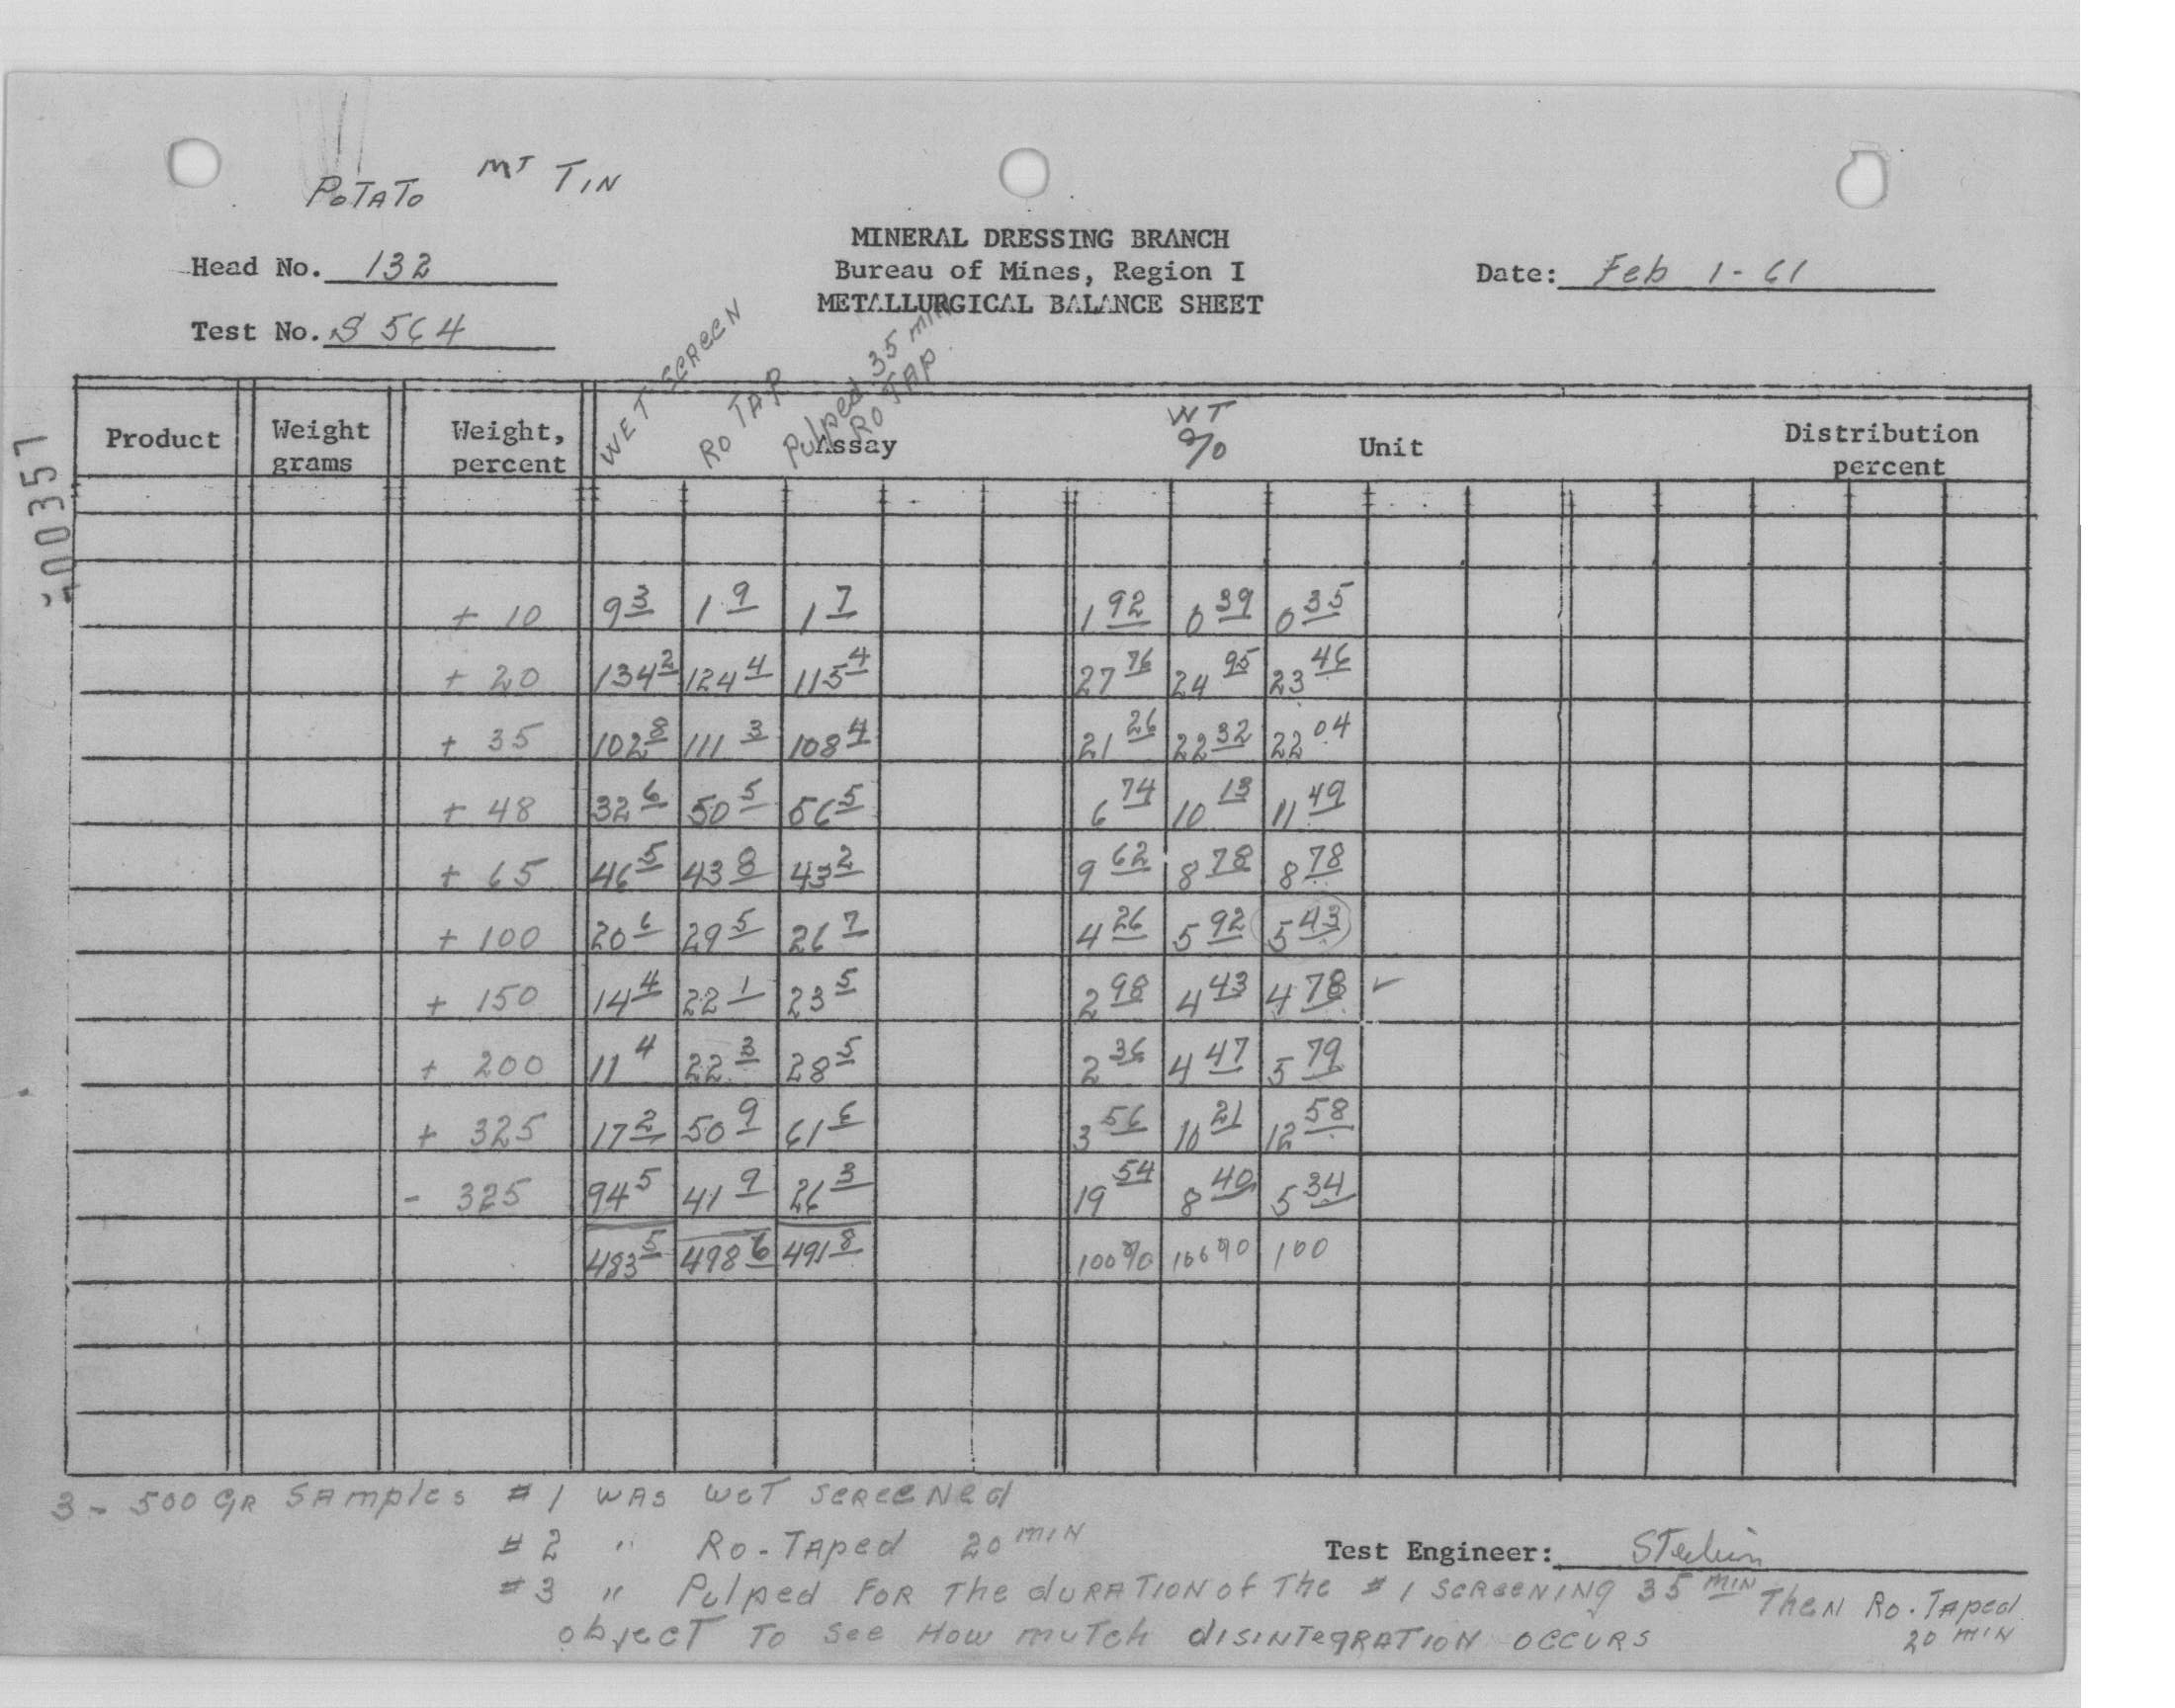 POTATO MT TIN
MINERAL DRESSING BRANCH
Head No. 132
Bureau of Mines, Region I
Date: Feb 1-61
METALLURGICAL BALANCE SHEET
Test No. S 564
WET SCREEN
RO TAP
Pulped 35 min
RO TAP
Product Weight grams Weight, percent Assay WT % Unit Distribution percent
+ 10 9 3 1 9 1 7 1 92 0 39 0 35
+ 20 134 2 124 4 115 4 27 76 24 95 23 46
+ 35 102 8 111 3 108 4 21 26 22 32 22 04
+ 48 32 6 50 5 56 5 6 74 10 13 11 49
+ 65 46 5 43 8 43 2 9 62 8 78 8 78
+ 100 20 6 29 5 26 7 4 26 5 92 5 43
+ 150 14 4 22 1 23 5 2 98 4 43 4 78 ✓
+ 200 11 4 22 3 28 5 2 36 4 47 5 79
+ 325 17 2 50 9 61 6 3 56 10 21 12 58
- 325 94 5 41 9 26 3 19 54 8 40 5 34
483 5 498 6 491 8 100% 100% 100
3 - 500 GR SAMPLES # 1 WAS WET SCREENED
# 2 " RO-TAPed 20 MIN
Test Engineer:
# 3 " Pulped FOR THE dURATION of THE # 1 SCREENING 35 MIN THEN RO-TAPed
20 MIN
object TO See HOW MUTCH dISINTEGRATION OCCURS